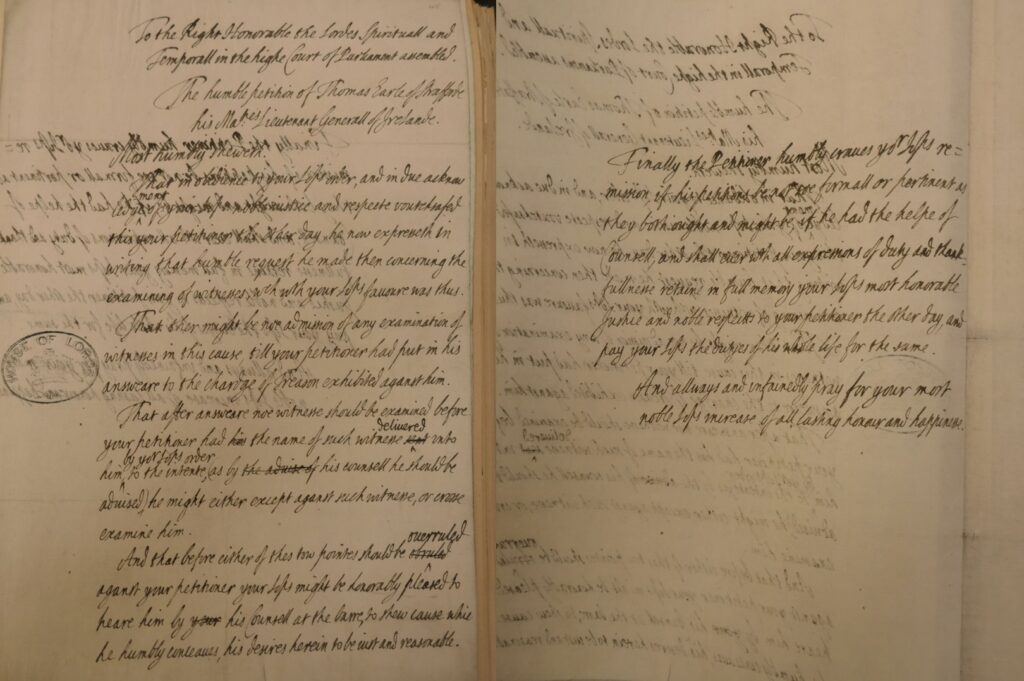 To the Right Honorable the Lordes Spirituall and
Temporall in the highe Court of Parliament assembled.
The humble petition of Thomas Earle of Strafforde
his Maties Lieutenant Generall of Irelande.
Most humbly sheweth.
That in obedience to your Lopps order, and in due acknow
ment
ledge of your Lopps noble iustice and respecte voutesafed
this your petitioner the other day, he now expresseth in
writing that humble request he made then concerning the
examining of witnesses, wch wth your Lopps favoure was thus.
That ther might be noe admission of any examination of
witnesses in this cause, till your petitioner had put in his
answeare to the chardge of Treason exhibited against him.
That after answeare noe witnesse should be examined before
delivered
your petitioner had him the name of such witnesse into
by yor Lopps order
him, to the intente, as by the advise of his counsell he should be
advised, he might either except against such witnesse, or crosse
examine him.
overruled
And that before either of thes tow pointes should be
against your petitioner your Lopps might be honorably pleased to
heare him by your his Counsell at the barre, to shew cause while
he humbly conceaues, his desires herein to be iust and reasonable.
HOUSE OF LORDS
Finally the Petitioner humbly craves yor Lopps re=
mission if his petitions be not soe formall or pertinent as
they both ought and might be, if he had the helpe of
Counsell, and shall ever wth all expressions of duty and thank
fullnesse retaine in full memory your Lopps most honorable
Justice and noble respects to your petitioner the other day, and
pay your Lopps the dutyes of his whole life for the same.
And allways and infinitedly pray for your most
noble Lopps increase of all lasting honour and happinesse.